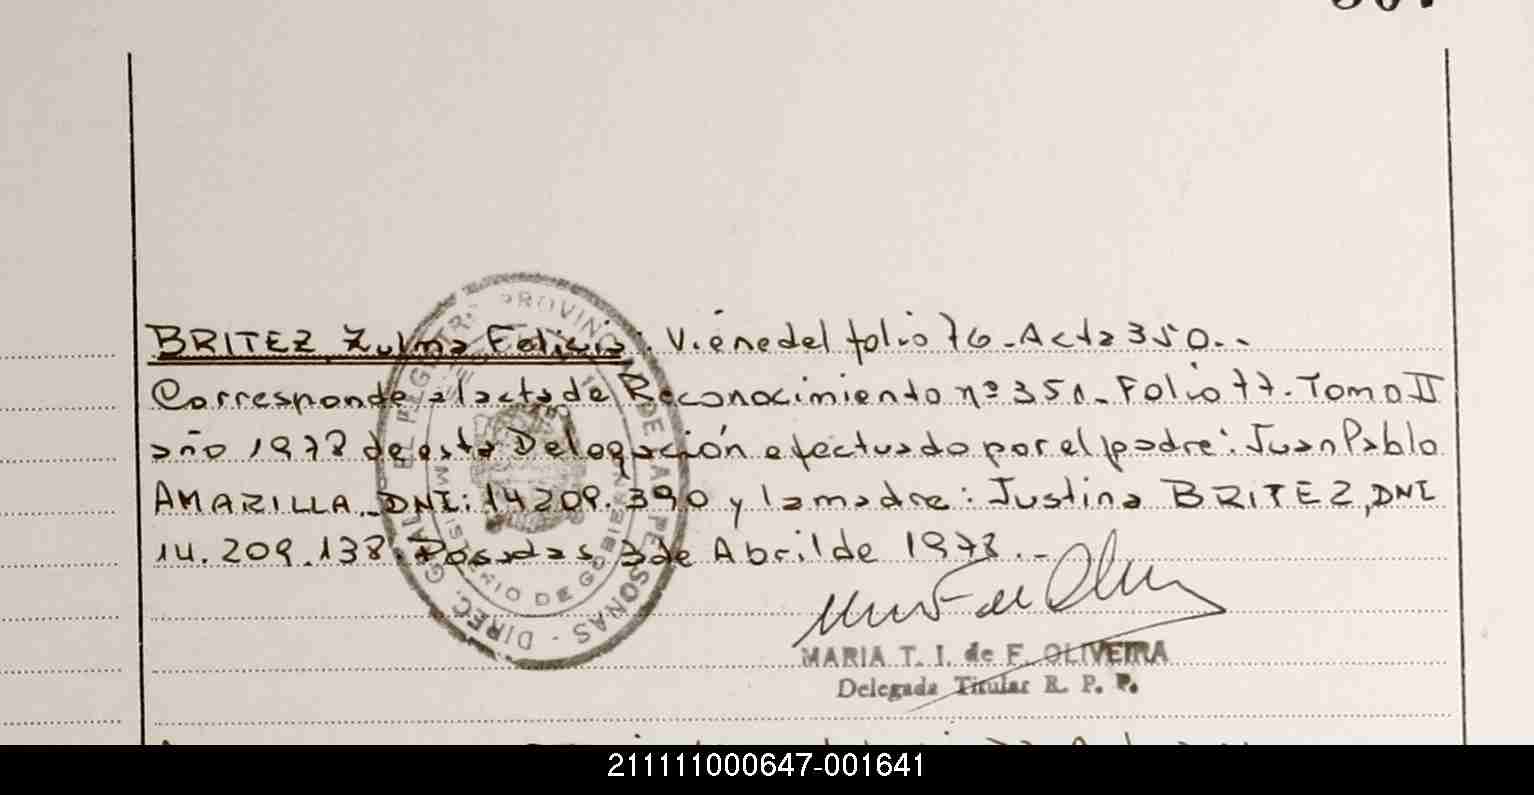 BRITEZ Zulma Felicia. Viene del folio 76 - Acta 350 - -
Corresponde al acta de Reconocimiento nº 351 - Folio 77 - Tomo II
año 1978 de esta Delegación efectuado por el padre: Juan Pablo
AMARILLA - DNI: 14209.390 y la madre: Justina BRITEZ, DNI
14.209.138. Posadas, 3 de Abril de 1978. -
MARIA T. I. de F. OLIVEIRA
Delegada Titular R. P. P.
DIREC. PROVINC DE PERSONAS
MINISTERIO DE GOBIERN
211111000647-001641